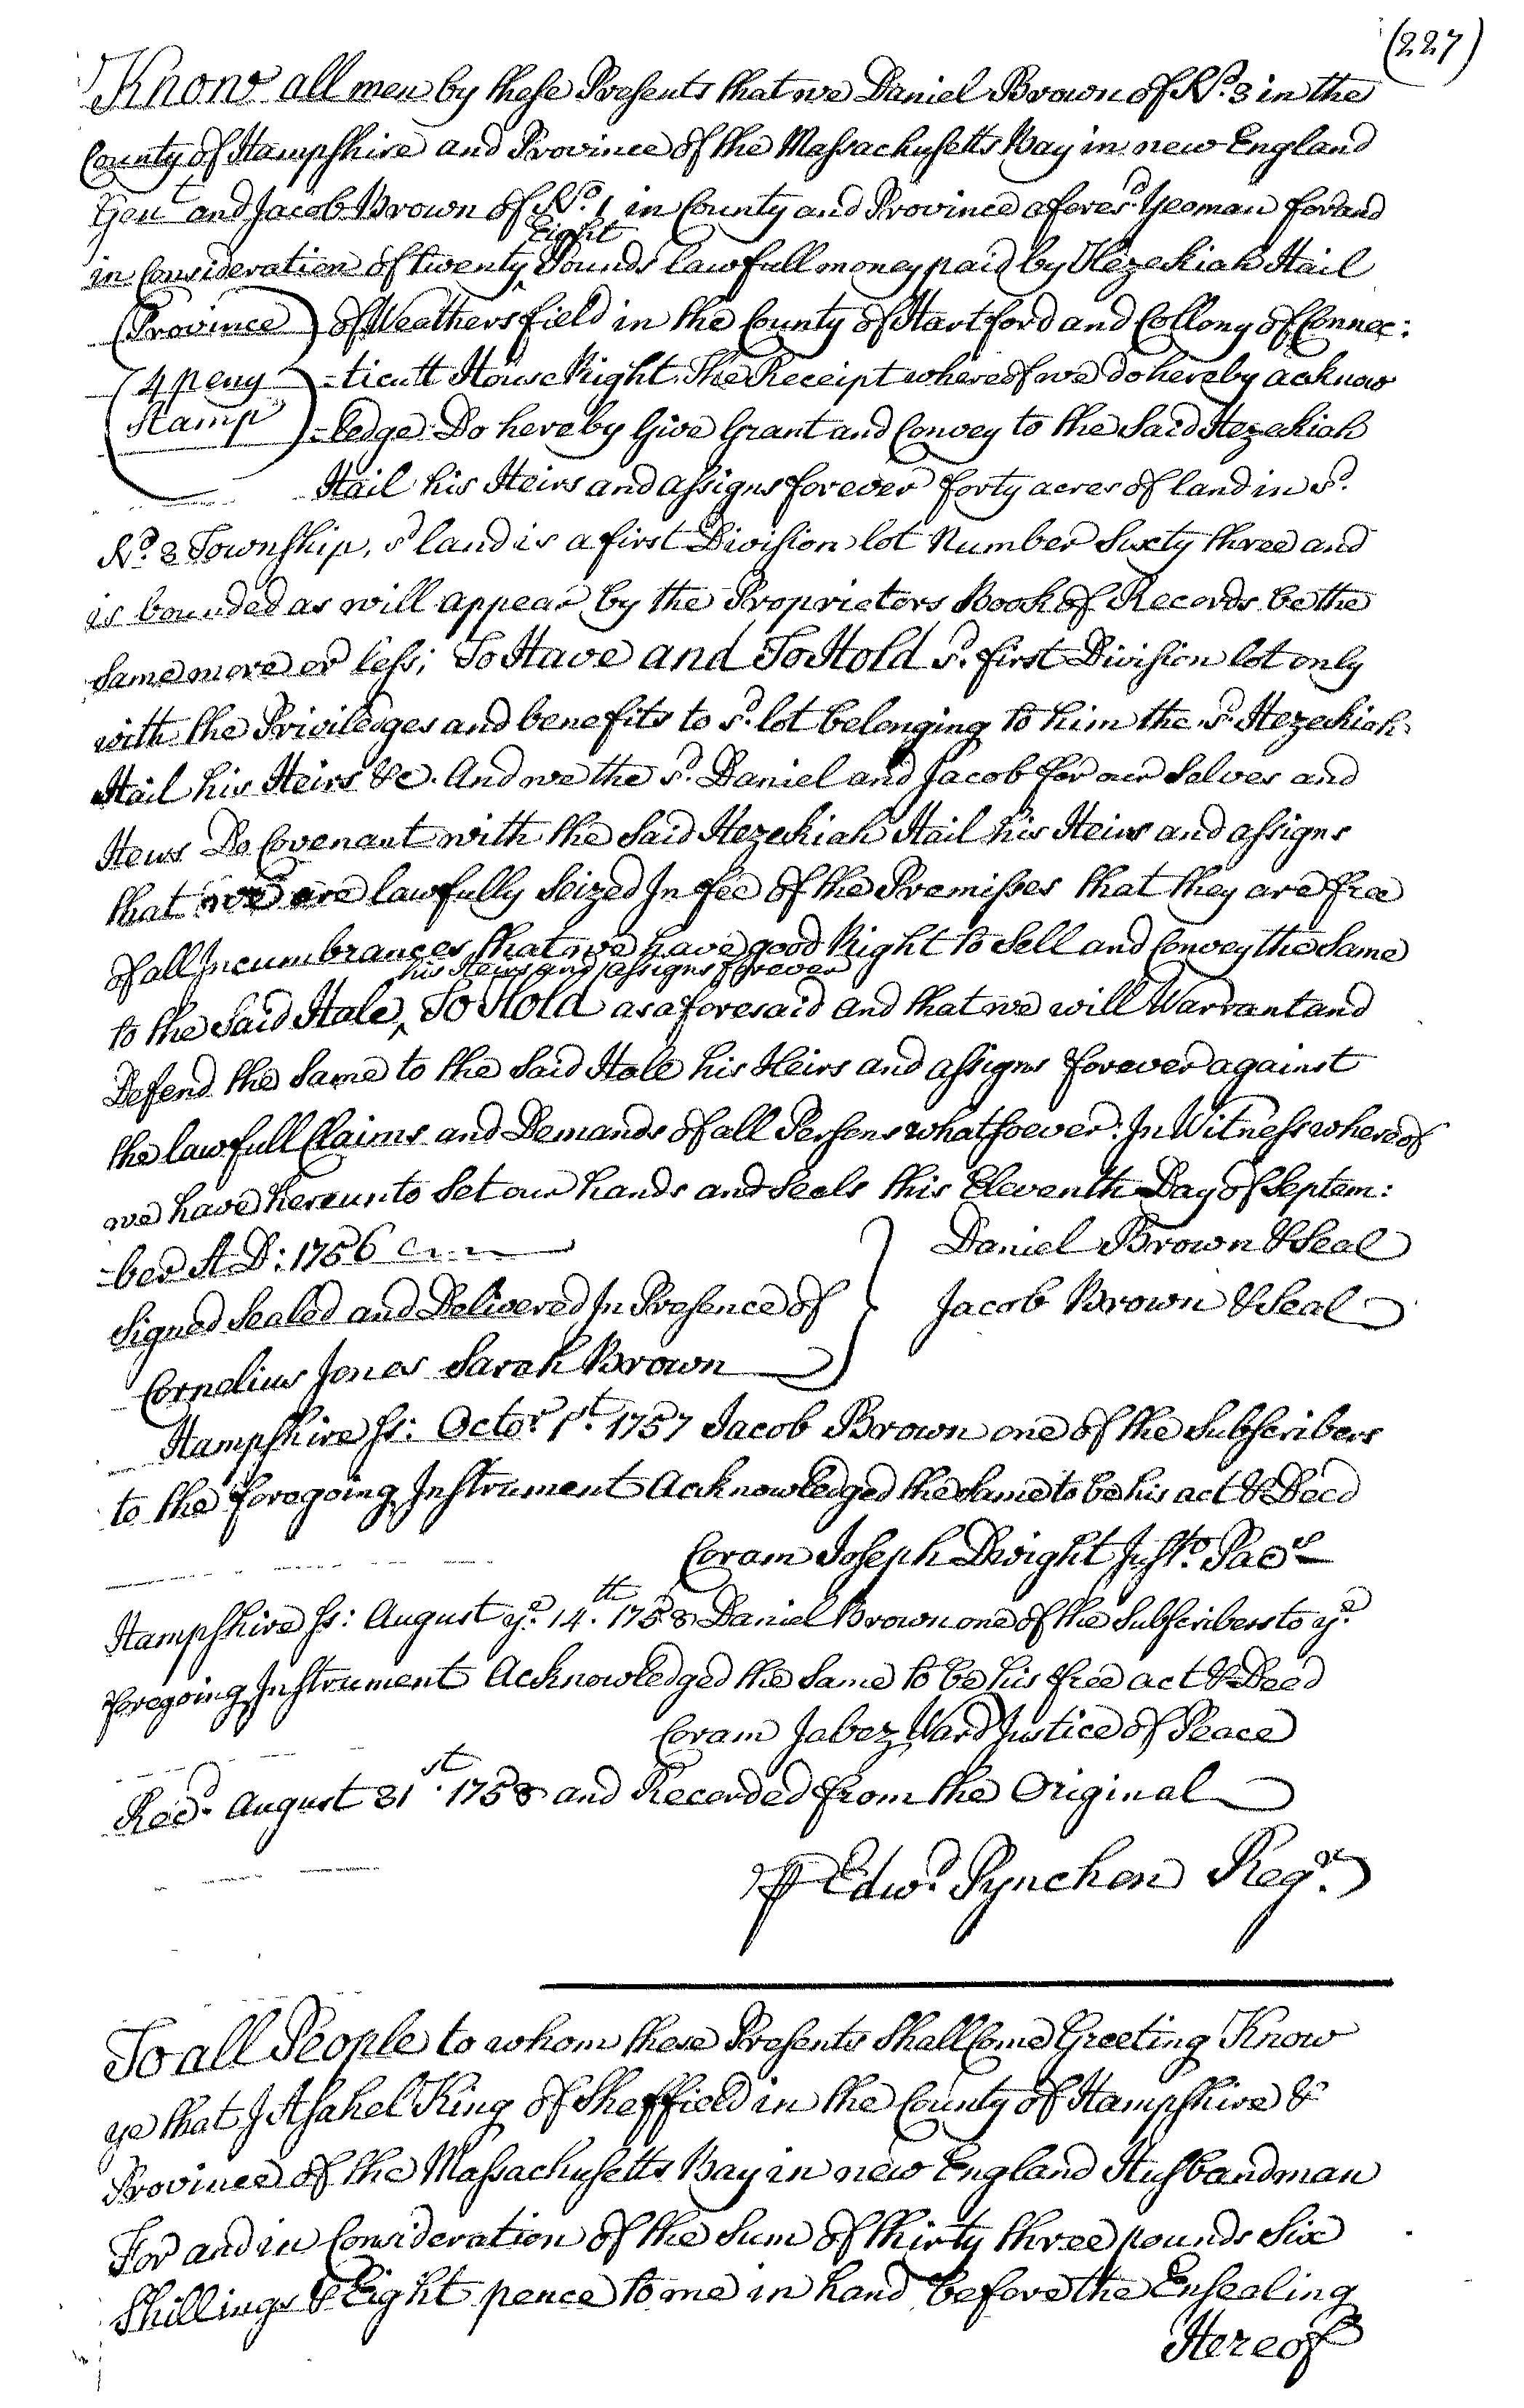 (227)
Know all men by these Presents that we Daniel Brown of No. 3 in the
County of Hampshire and Province of the Massachusetts Bay in new England
Gent and Jacob Brown of No. 1 in County and Province afores.d Yeoman for and
Eight
in Consideration of twenty ‸ Pounds lawfull money paid by Hezekiah Hail
Province of Weathersfield in the County of Hartford and Collony of Connec:
4 peny -ticutt House Right. The Receipt whereof we do hereby acknow
Stamp -ledge. Do hereby Give Grant and Convey to the Said Hezekiah
Hail his Heirs and assigns forever forty acres of land in s.d
No. 3 Township, s.d land is a first Division lot Number Sixty three and
is bounded as will appear by the Proprietors Book of Records be the
same more or less; To Have and To Hold s.d first Division lot only
with the Priviledges and benefits to s.d lot belonging to him the s.d Hezekiah
Hail his Heirs &c. And we the s.d Daniel and Jacob for our Selves and
Heirs Do Covenant with the Said Hezekiah Hail his Heirs and assigns
that we are lawfully Seized In fee of the Premisses that they are free
of all Incumbrances that we have good Right to Sell and Convey the Same
his Heirs and assigns forever
to the Said Hale ‸ To Hold as aforesaid and that we will Warrant and
Defend the Same to the Said Hale his Heirs and assigns forever against
the lawfull Claims and Demands of all Persons whatsoever. In Witness whereof
we have hereunto Set our hands and Seals this Eleventh Day of Septem:
-ber A D: 1756
Daniel Brown & Seal
Signed Sealed and Delivered In Presence of
Jacob Brown & Seal
Cornelius Jones Sarah Brown
Hampshire ss: Octor. 1st. 1757 Jacob Brown one of the Subscribers
to the foregoing Instrument Acknowledged the Same to be his act & Deed
Coram Joseph Dwight Justo. Pacs
Hampshire ss: August ye. 14th. 1758 Daniel Brown one of the Subscribers to ye.
foregoing Instrument Acknowledged the Same to be his free act & Deed
Coram Jabez Ward Justice of Peace
Recd. August 31st. 1758 and Recorded from the Original
⅌ Edwd. Pynchon Regr.
To all People to whom these Presents Shall Come Greeting Know
ye that I Asahel King of Sheffield in the County of Hampshire &
Province of the Massachusetts Bay in new England Husbandman
For and in Consideration of the Sum of thirty three pounds Six
Shillings & Eight pence to me in hand before the Ensealing
Hereof